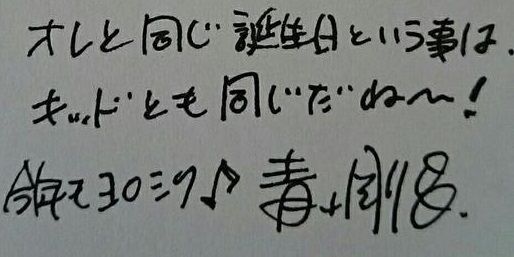 オレと同じ誕生日という事は.
キッドとも同じだね〜!
今年もヨロシク♪ 青山剛昌.